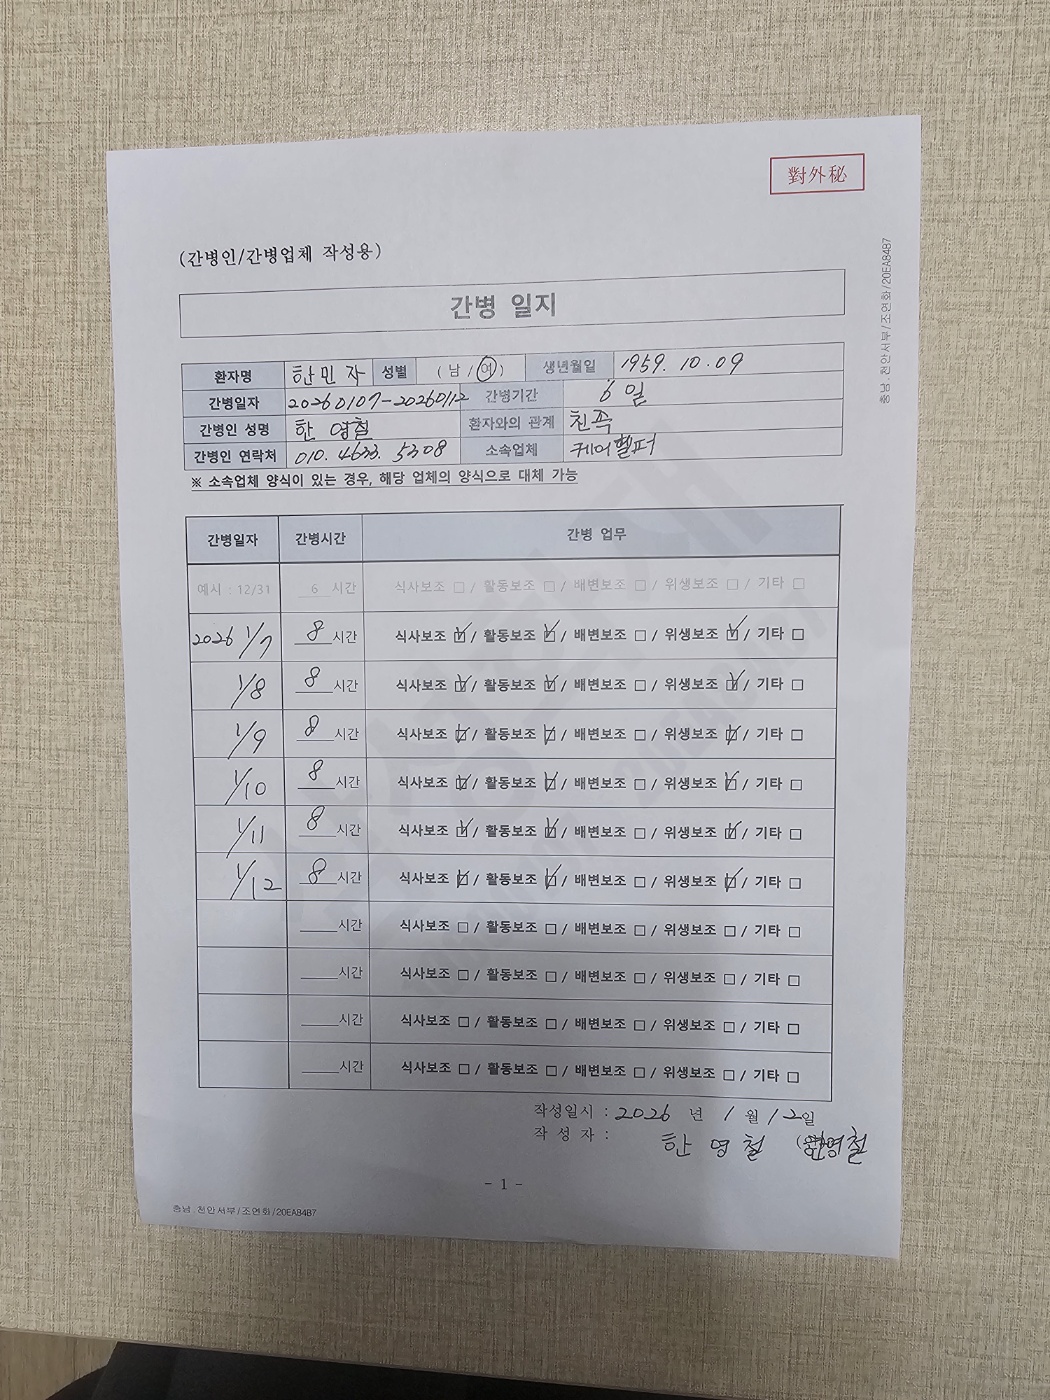 對外秘
(간병인/간병업체 작성용)
충남.천안서부/조연화/20EA84B7
간병 일지
환자명 한민자 성별 (남/여) 생년월일 1959.10.09
간병일자 20260107-20260112 간병기간 6일
간병인 성명 한영철 환자와의 관계 친족
간병인 연락처 010.4633.5308 소속업체 케어헬퍼
※ 소속업체 양식이 있는 경우, 해당 업체의 양식으로 대체 가능
간병일자 간병시간 간병 업무
예시 : 12/31 6 시간 식사보조 □ / 활동보조 □ / 배변보조 □ / 위생보조 □ / 기타 □
2026 1/7 8 시간 식사보조 ☑ / 활동보조 ☑ / 배변보조 □ / 위생보조 ☑ / 기타 □
1/8 8 시간 식사보조 ☑ / 활동보조 ☑ / 배변보조 □ / 위생보조 ☑ / 기타 □
1/9 8 시간 식사보조 ☑ / 활동보조 ☑ / 배변보조 □ / 위생보조 ☑ / 기타 □
1/10 8 시간 식사보조 ☑ / 활동보조 ☑ / 배변보조 □ / 위생보조 ☑ / 기타 □
1/11 8 시간 식사보조 ☑ / 활동보조 ☑ / 배변보조 □ / 위생보조 ☑ / 기타 □
1/12 8 시간 식사보조 ☑ / 활동보조 ☑ / 배변보조 □ / 위생보조 ☑ / 기타 □
시간 식사보조 □ / 활동보조 □ / 배변보조 □ / 위생보조 □ / 기타 □
시간 식사보조 □ / 활동보조 □ / 배변보조 □ / 위생보조 □ / 기타 □
시간 식사보조 □ / 활동보조 □ / 배변보조 □ / 위생보조 □ / 기타 □
시간 식사보조 □ / 활동보조 □ / 배변보조 □ / 위생보조 □ / 기타 □
작성일시 : 2026 년 1 월 12일
작 성 자 : 한영철
- 1 -
충남.천안서부/조연화/20EA84B7